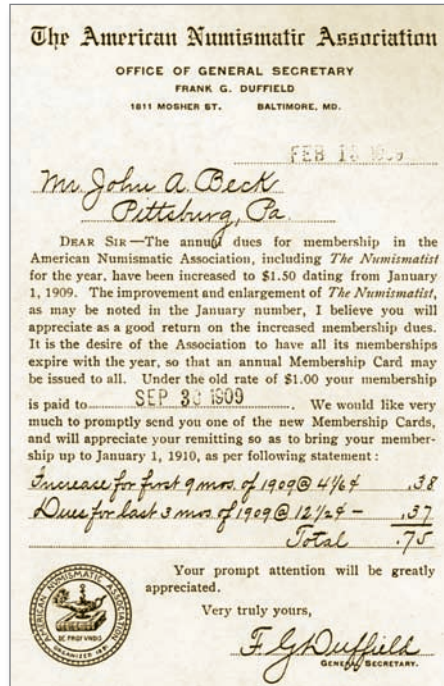 The American Numismatic Association
OFFICE OF GENERAL SECRETARY
FRANK G. DUFFIELD
1811 MOSHER ST. BALTIMORE, MD.
FEB 1909
Mr. John A. Beck
Pittsburg, Pa.
DEAR SIR—The annual dues for membership in the
American Numismatic Association, including The Numismatist
for the year, have been increased to $1.50 dating from January
1, 1909. The improvement and enlargement of The Numismatist,
as may be noted in the January number, I believe you will
appreciate as a good return on the increased membership dues.
It is the desire of the Association to have all its memberships
expire with the year, so that an annual Membership Card may
be issued to all. Under the old rate of $1.00 your membership
is paid to SEP 30 1909. We would like very
much to promptly send you one of the new Membership Cards,
and will appreciate your remitting so as to bring your member-
ship up to January 1, 1910, as per following statement:
Increase for first 9 mos. of 1909 @ 4 1/6 ¢ .38
Dues for last 3 mos. of 1909 @ 12 1/2 ¢ — .37
Total .75
Your prompt attention will be greatly
appreciated.
Very truly yours,
F. G. Duffield
GENERAL SECRETARY.
AMERICAN NUMISMATIC ASSOCIATION
DE PROFUNDO
ORGANIZED 1891